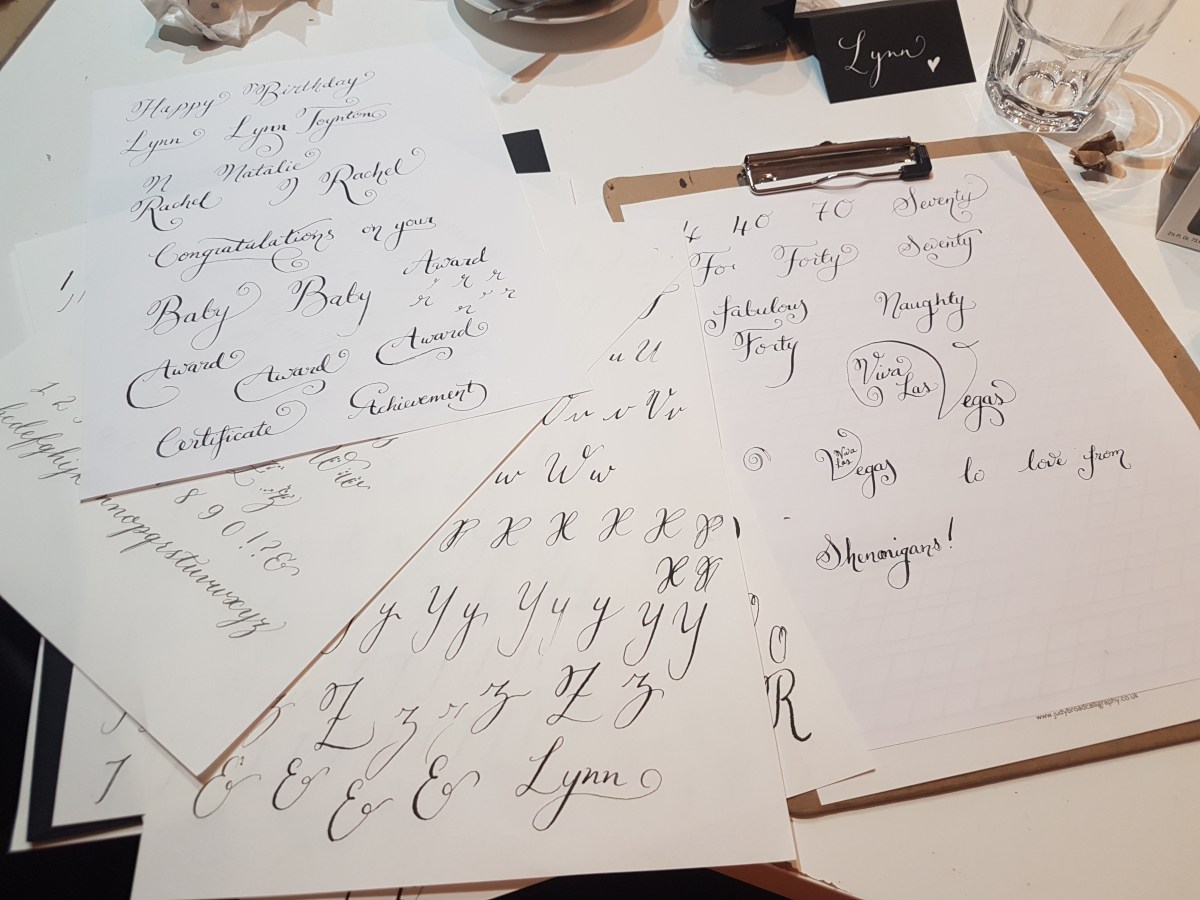 Lynn
Happy Birthday
Lynn Lynn Toynton
N Natalie
Rachel N Rachel
Congratulations on your
Award
Baby Baby r r r
r r r r
Award Award Award
Certificate Achievement
4 40 70 Seventy
For Forty Seventy
Fabulous Naughty
Forty
Viva
Las Vegas
Viva
Las
Vegas lo love from
Shenanigans!
www.judybroadcalligraphy.co.uk
1 2
bcdefghijn
8 9 0 !?&
nnopqrstuvwxyz
u U
v v Vv
w Ww
x X X X X x
X X
y Yy Yy y y y
Z z z z Z z
& & & & Lynn
O
R